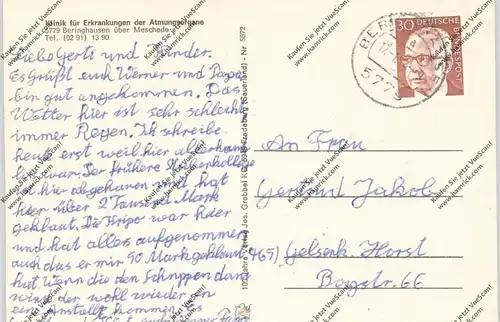 Klinik für Erkrankungen der Atmungsorgane
5779 Beringhausen über Meschede
Tel. (02 91) 13 90
Liebe Gerti und Kinder.
Es Grüßt euch Werner und Papa
bin gut angekommen. Das
Wetter hier ist sehr schlecht
immer Regen. Ich schreibe
heute erst weil hier allerhand
los war. Der frühere
hier abgehauen und hat
hier über 2 Tausend Mark
geklaut. Die Kripo war hier
und hat alles aufgenommen
auch das er mir 50 Mark geklaut
hat wenn die den Schnappen dann
wird der wohl wieder in
eine Anstallt kommen.
100 Jahre Verlag Jos. Grobbel KG, Fredeburg (Sauerland) - Nr. 5972
30
DEUTSCHE
BUNDESPOST
5779
An Frau
Gertrud Jakob
465) Gelsenk. Horst
Bogstr. 66
Kaufen Sie jetzt VueScan!
www.hamrick.com